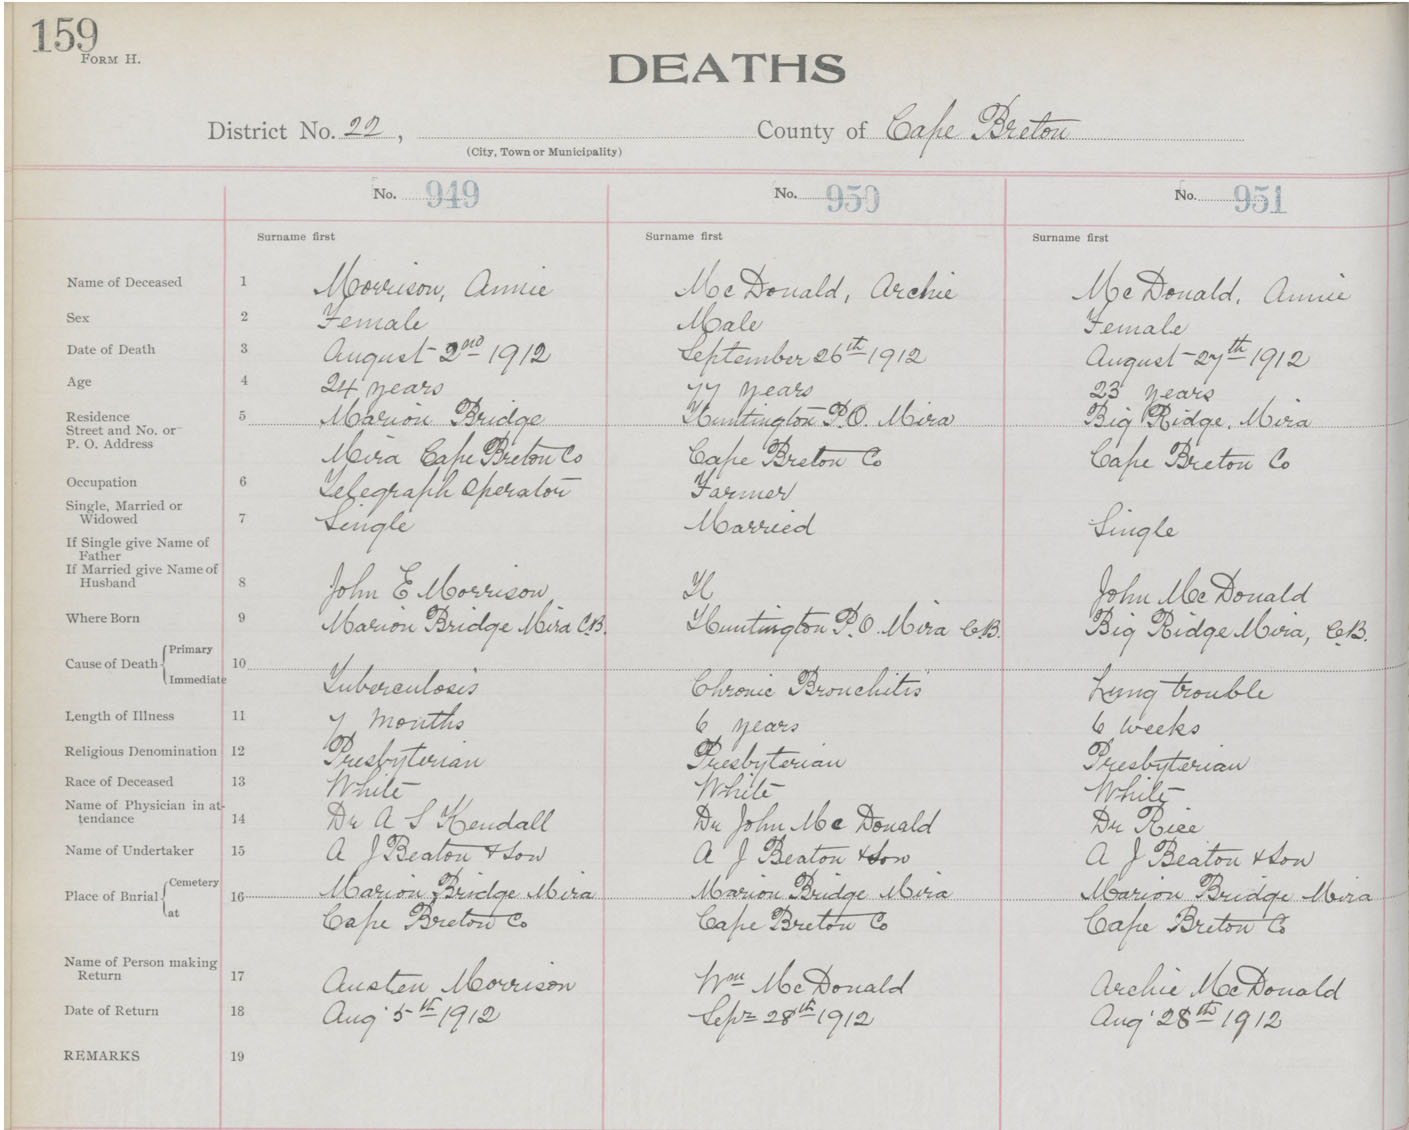 159
FORM H.
DEATHS
District No. 22, County of Cape Breton
(City, Town or Municipality)
No. 949 No. 950 No. 951
Surname first Surname first Surname first
Name of Deceased 1 Morrison, Annie McDonald, Archie McDonald, Annie
Sex 2 Female Male Female
Date of Death 3 August 2nd 1912 September 26th 1912 August 27th 1912
Age 4 24 years 77 years 23 years
Residence 5 Marion Bridge Huntington P.O. Mira Big Ridge, Mira
Street and No. or
P. O. Address Mira Cape Breton Co Cape Breton Co Cape Breton Co
Occupation 6 Telegraph Operator Farmer
Single, Married or
Widowed 7 Single Married Single
If Single give Name of
Father
If Married give Name of
Husband 8 John E Morrison H John McDonald
Where Born 9 Marion Bridge Mira C.B. Huntington P.O. Mira C.B. Big Ridge Mira, C.B.
Primary
Cause of Death 10
Immediate Tuberculosis Chronic Bronchitis Lung trouble
Length of Illness 11 7 months 6 years 6 weeks
Religious Denomination 12 Presbyterian Presbyterian Presbyterian
Race of Deceased 13 White White White
Name of Physician in at-
tendance 14 Dr A S Kendall Dr John Mc Donald Dr Rice
Name of Undertaker 15 A J Beaton & Son A J Beaton & Son A J Beaton & Son
Cemetery
Place of Burial 16 Marion Bridge Mira Marion Bridge Mira Marion Bridge Mira
at Cape Breton Co Cape Breton Co Cape Breton Co
Name of Person making
Return 17 Austen Morrison Wm McDonald Archie McDonald
Date of Return 18 Aug' 5th 1912 Sept 28th 1912 Aug' 28th 1912
REMARKS 19